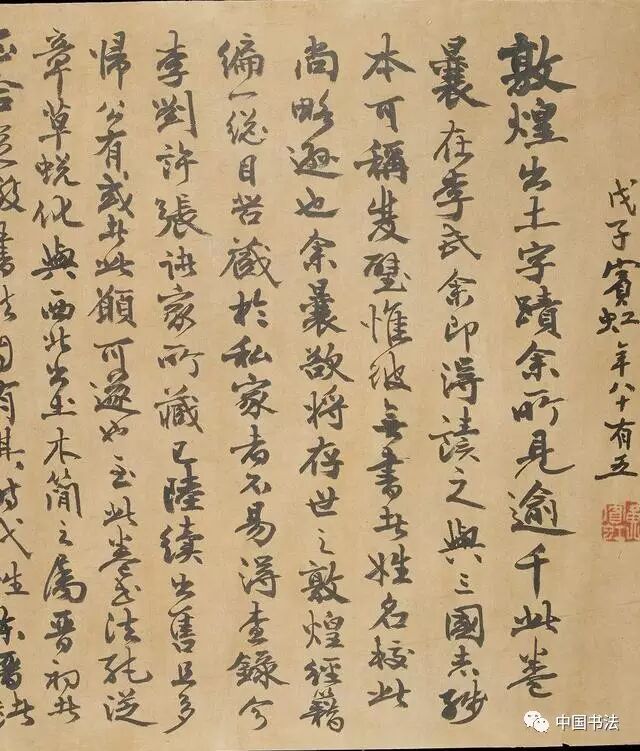 戊子賓虹年八十有五
敦煌出土字蹟余所見逾千此卷
曩在李氏余即得讀之與三國志
本可稱雙璧惟彼無書者姓名校此
尚略遜也余曩欲將存世之敦煌經籍
編一總目苦藏於私家者不易得查錄今
李劉許張諸家所藏已陸續出售且多
歸公有或者此願可遂也至此卷書法純從
章草蛻化與西北出土木簡之屬晉初者
書法固有其時代性
中国书法